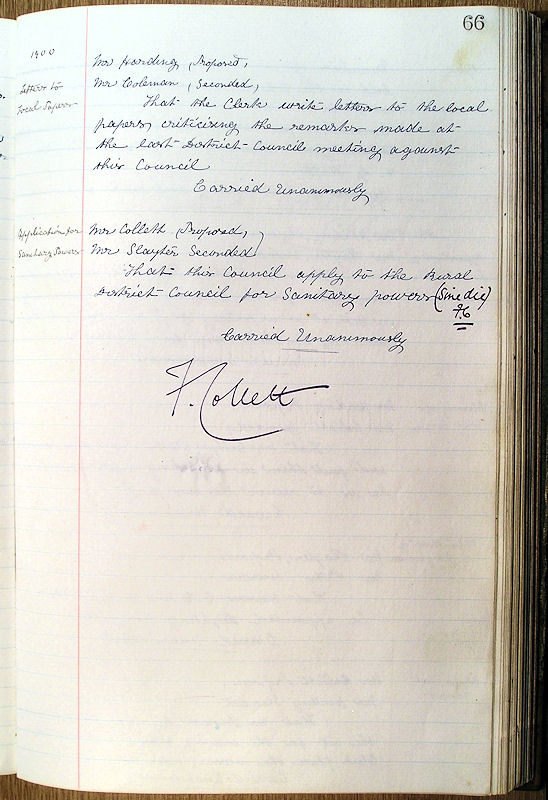 66
1900
Mr Harding, Proposed,
Letters to
Local Papers
Mr Coleman, Seconded,
That the Clerk write letters to the local
papers, criticising the remarks made at
the last District Council meeting against
this Council
Carried Unanimously
Application for
Sanitary Powers
Mr Collett, Proposed,
Mr Slayter Seconded
That this Council apply to the Rural
District Council for Sanitary powers (Sine die)
F.C
Carried Unanimously
F. Collett